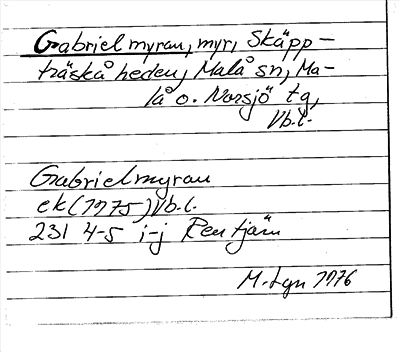 Gabrielmyran, myr, Skäpp-
träskåheden, Malå sn, Ma-
lå o. Norsjö tg,
Vb.l.
Gabrielmyran
ek (1975) Vb.l.
23I 4-5 i-j Rentjärn
M. Lyn 1976